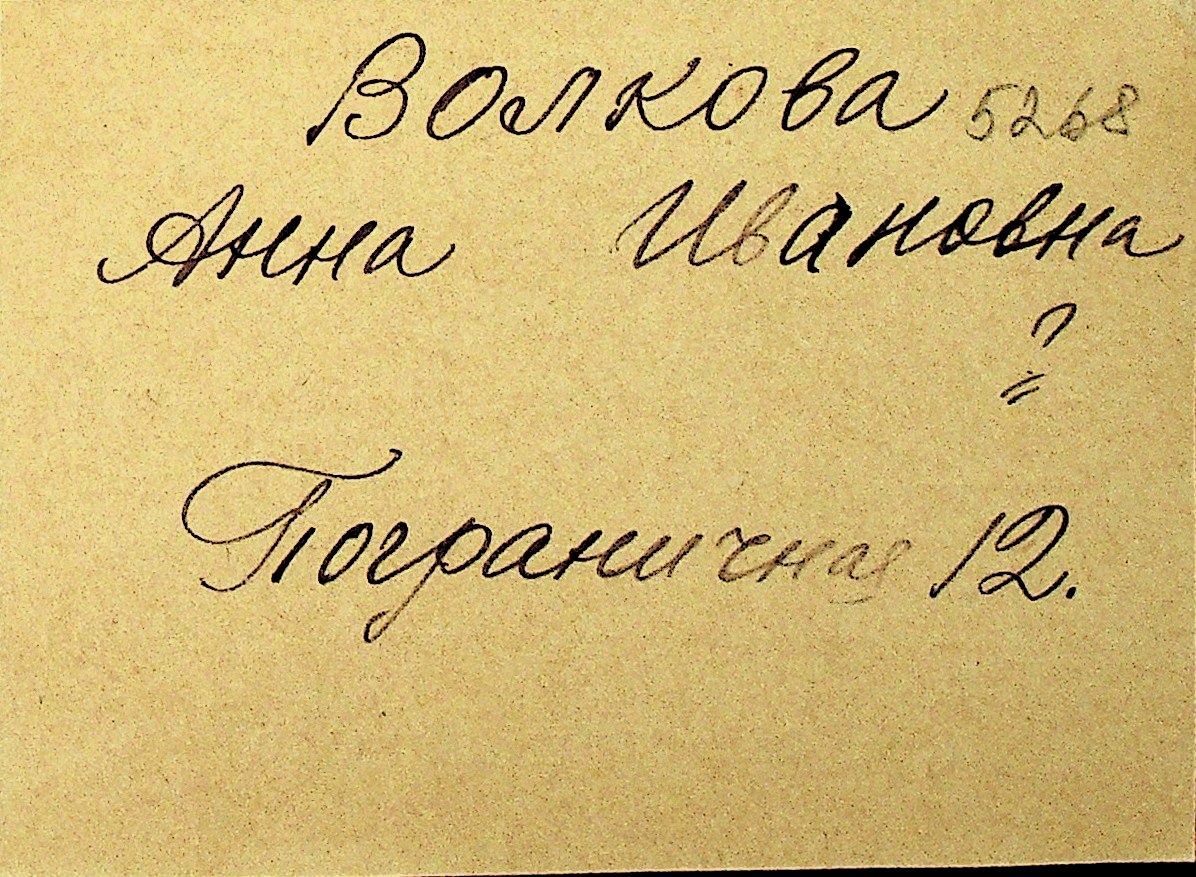 Волкова 5268
Анна Ивановна
?
=
Пограничная 12.